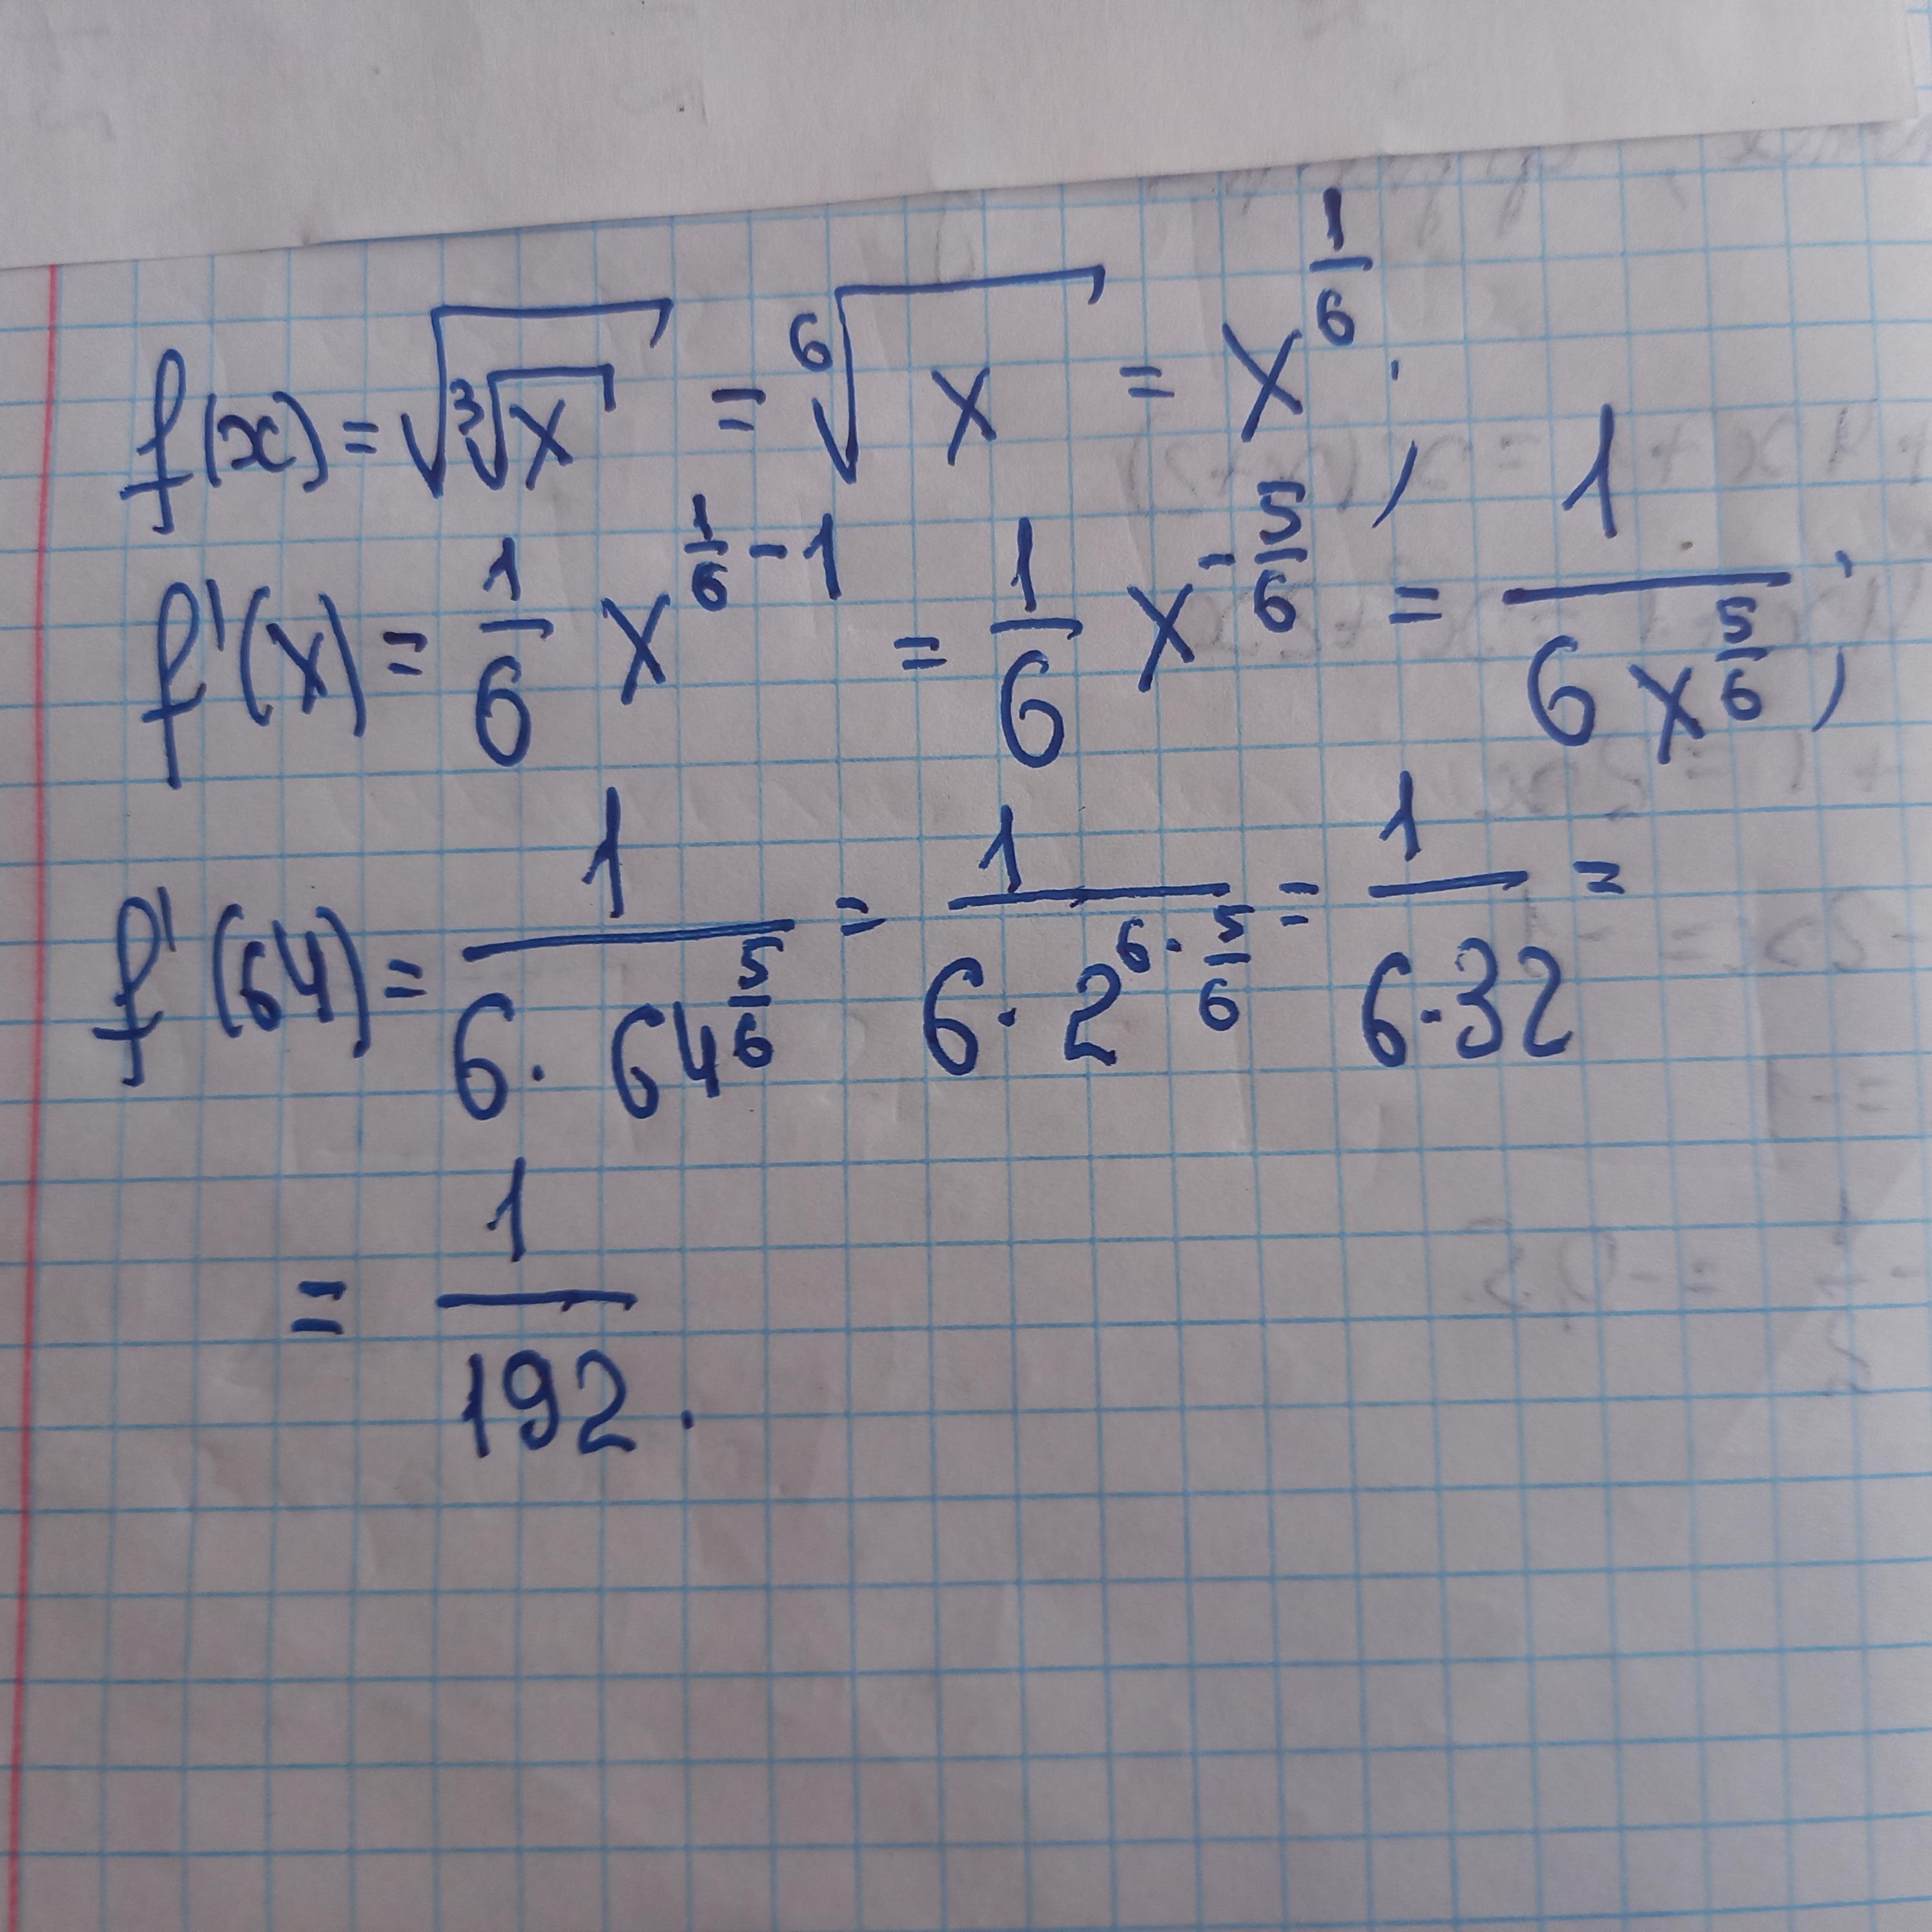 f(x) = √(∛x) = ⁶√x = x^(1/6);
f'(x) = 1/6 x^(1/6 - 1) = 1/6 x^(-5/6) = 1/(6x^(5/6));
f'(64) = 1/(6·64^(5/6)) = 1/(6·2^(6·5/6)) = 1/(6·32) =
= 1/192.